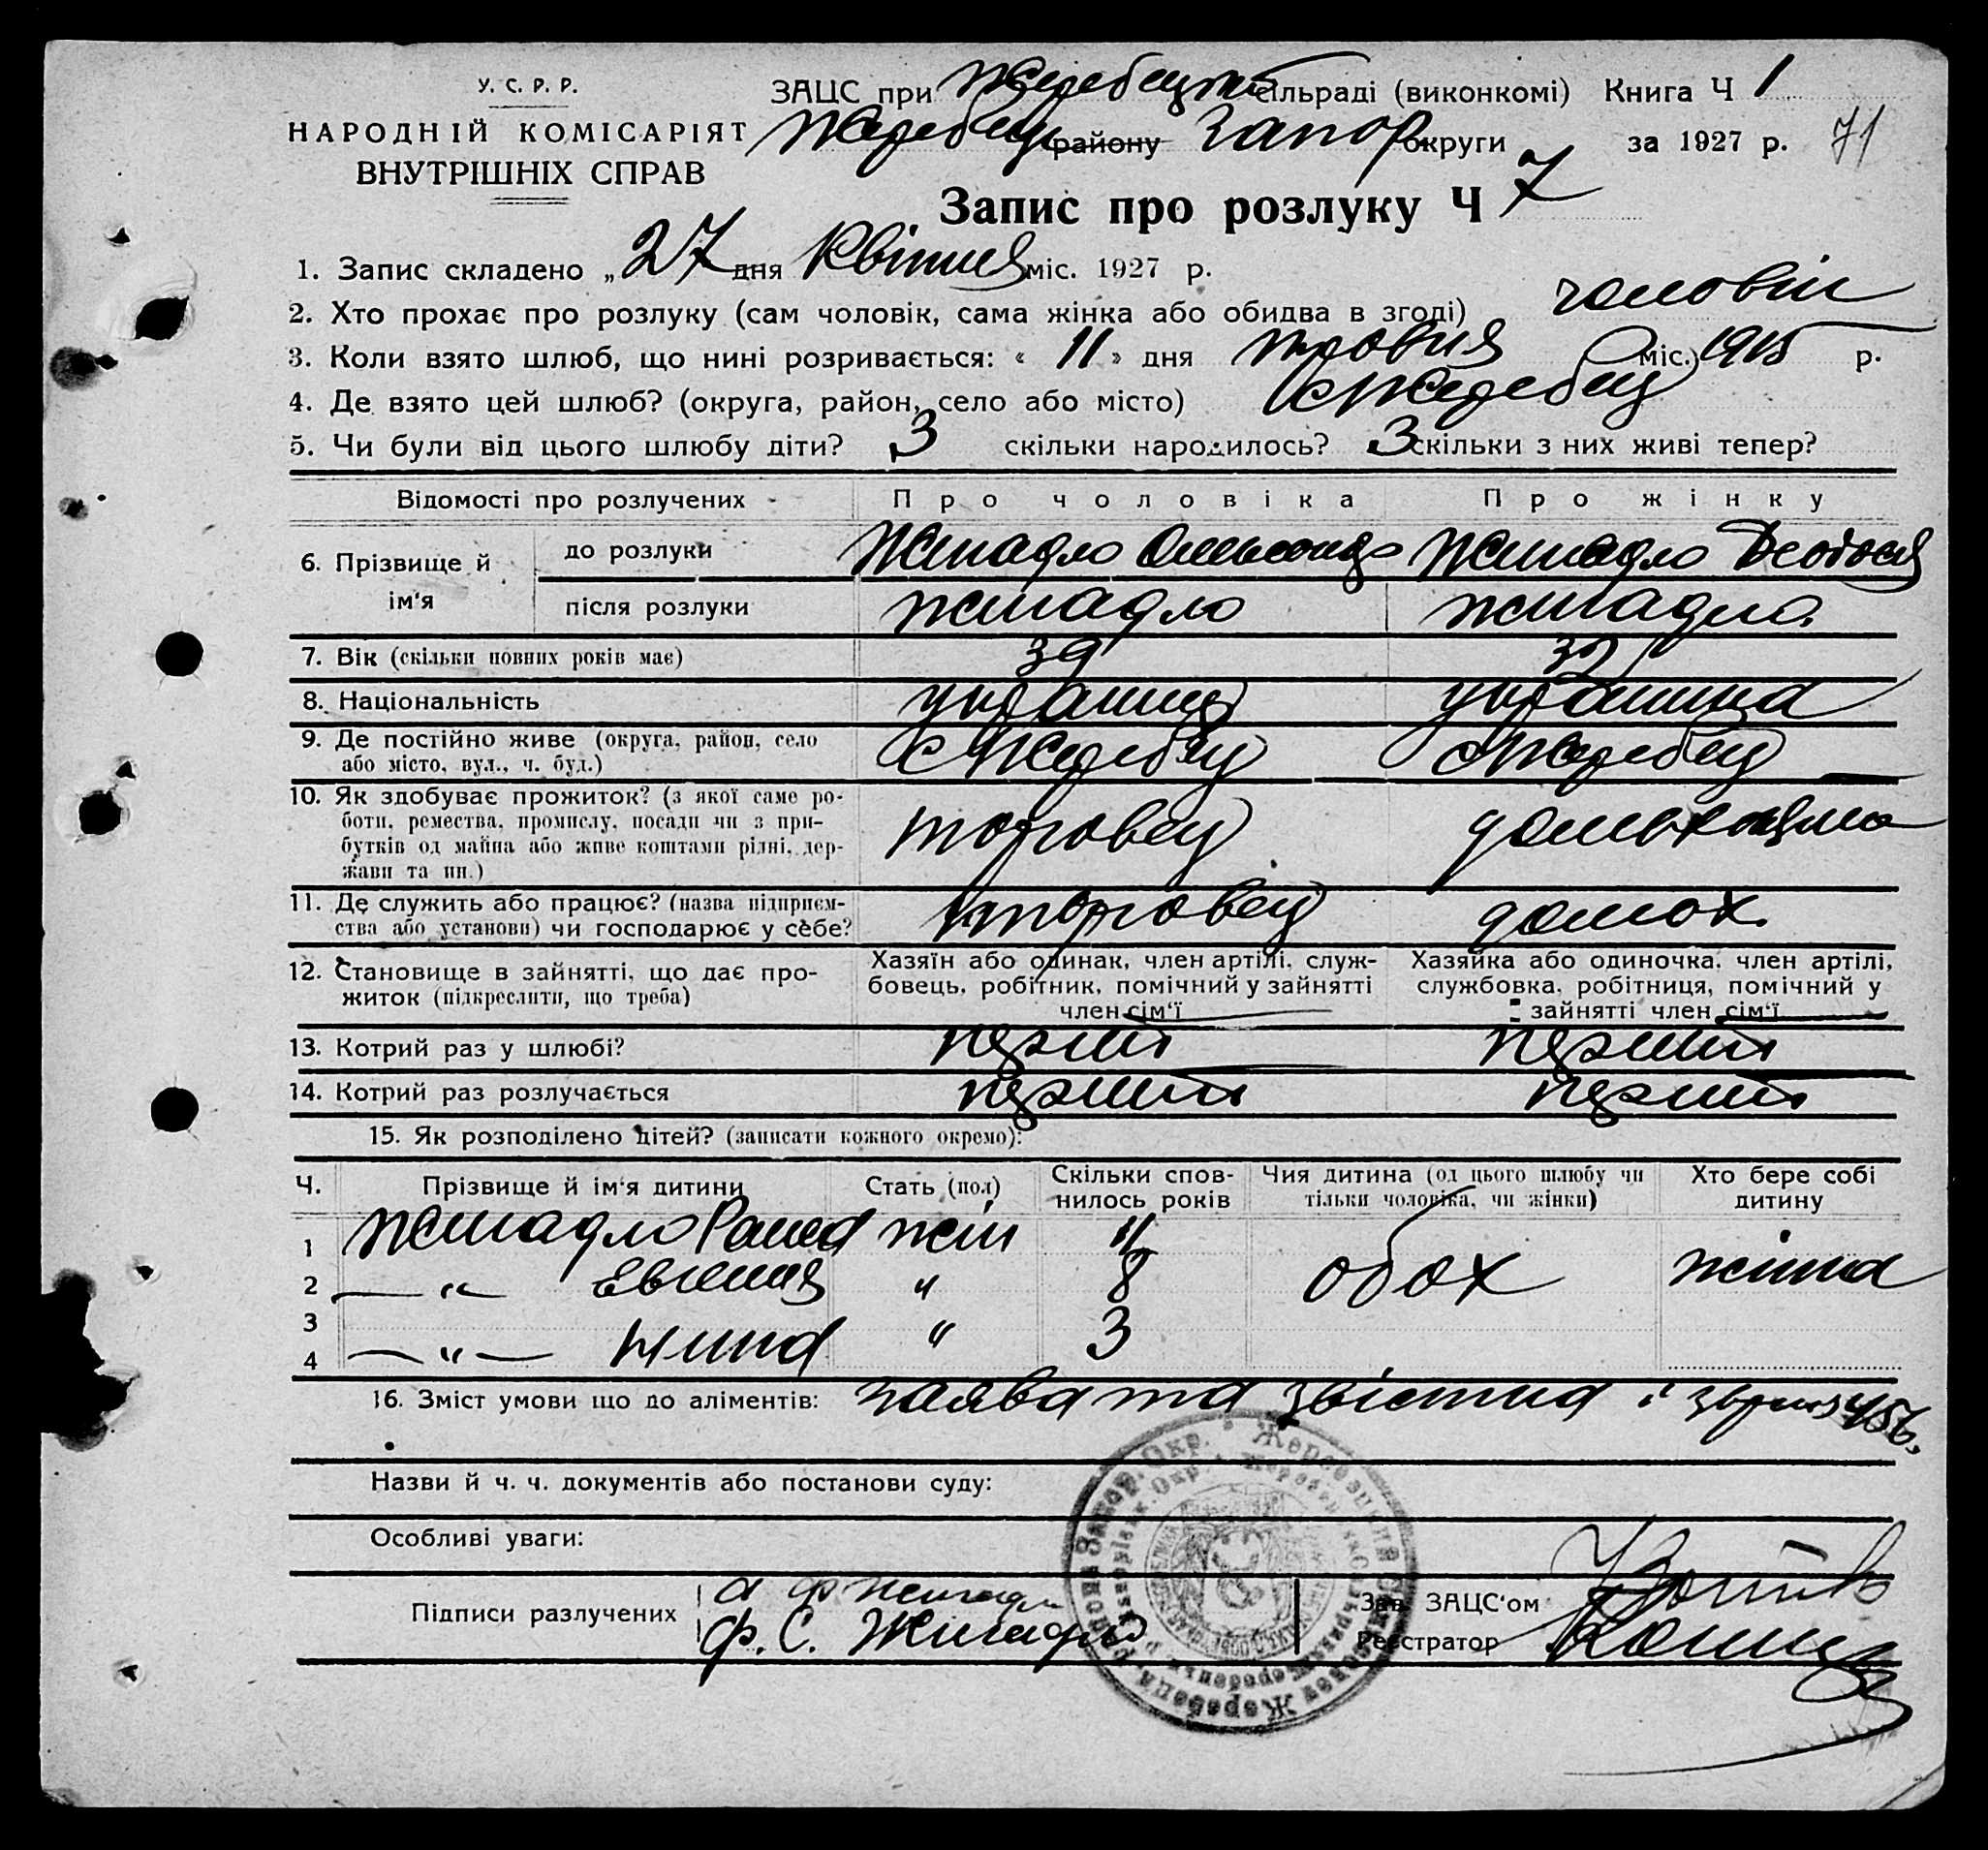 У. С. Р. Р.
НАРОДНІЙ КОМІСАРІЯТ
ВНУТРІШНІХ СПРАВ
ЗАЦС при Жеребецькій сільраді (виконкомі) Книга Ч 1
Жеребец району Запор округи за 1927 р. 71
Запис про розлуку Ч 7
1. Запис складено „ 27 дня Квітня міс. 1927 р.
2. Хто прохає про розлуку (сам чоловік, сама жінка або обидва в згоді) чоловік
3. Коли взято шлюб, що нині розривається: « 11 » дня міс. 1915 р.
4. Де взято цей шлюб? (округа, район, село або місто) с Жеребец
5. Чи були від цього шлюбу діти? 3 скільки народилось? 3 скільки з них живі тепер?
Відомості про розлучених Про чоловіка Про жінку
6. Прізвище й ім'я
до розлуки Жигадло Жигадло
після розлуки Жигадло Жигадло
7. Вік (скільки повних років має) 39 32
8. Національність українец українка
9. Де постійно живе (округа, район, село або місто, вул., ч. буд.) с Жеребец с Жеребец
10. Як здобуває прожиток? (з якої саме роботи, ремества, промислу, посади чи з прибутків од майна або живе коштами рідні, держави та ин.) торговец
11. Де служить або працює? (назва підприємства або установи) чи господарює у себе? торговец домох.
12. Становище в зайнятті, що дає прожиток (підкреслити, що треба)
Хазяїн або одинак, член артілі, службовець, робітник, помічний у зайнятті член сім'ї
Хазяйка або одиночка, член артілі, службовка, робітниця, помічний у зайнятті член сім'ї
13. Котрий раз у шлюбі? перший перший
14. Котрий раз розлучається перший перший
15. Як розподілено дітей? (записати кожного окремо):
Ч. Прізвище й ім'я дитини Стать (пол) Скільки сповнилось років Чия дитина (од цього шлюбу чи тільки чоловіка, чи жінки) Хто бере собі дитину
1 Жигадло жін 11
2 — „ — Евгения „ 8 обох жінка
3
4 — „ — Нина „ 3
16. Зміст умови що до аліментів: заява та звістка
Назви й ч. ч. документів або постанови суду:
Особливі уваги:
Підписи разлучених
Ф. С. Жигадло
Зав. ЗАЦС'ом
Реєстратор